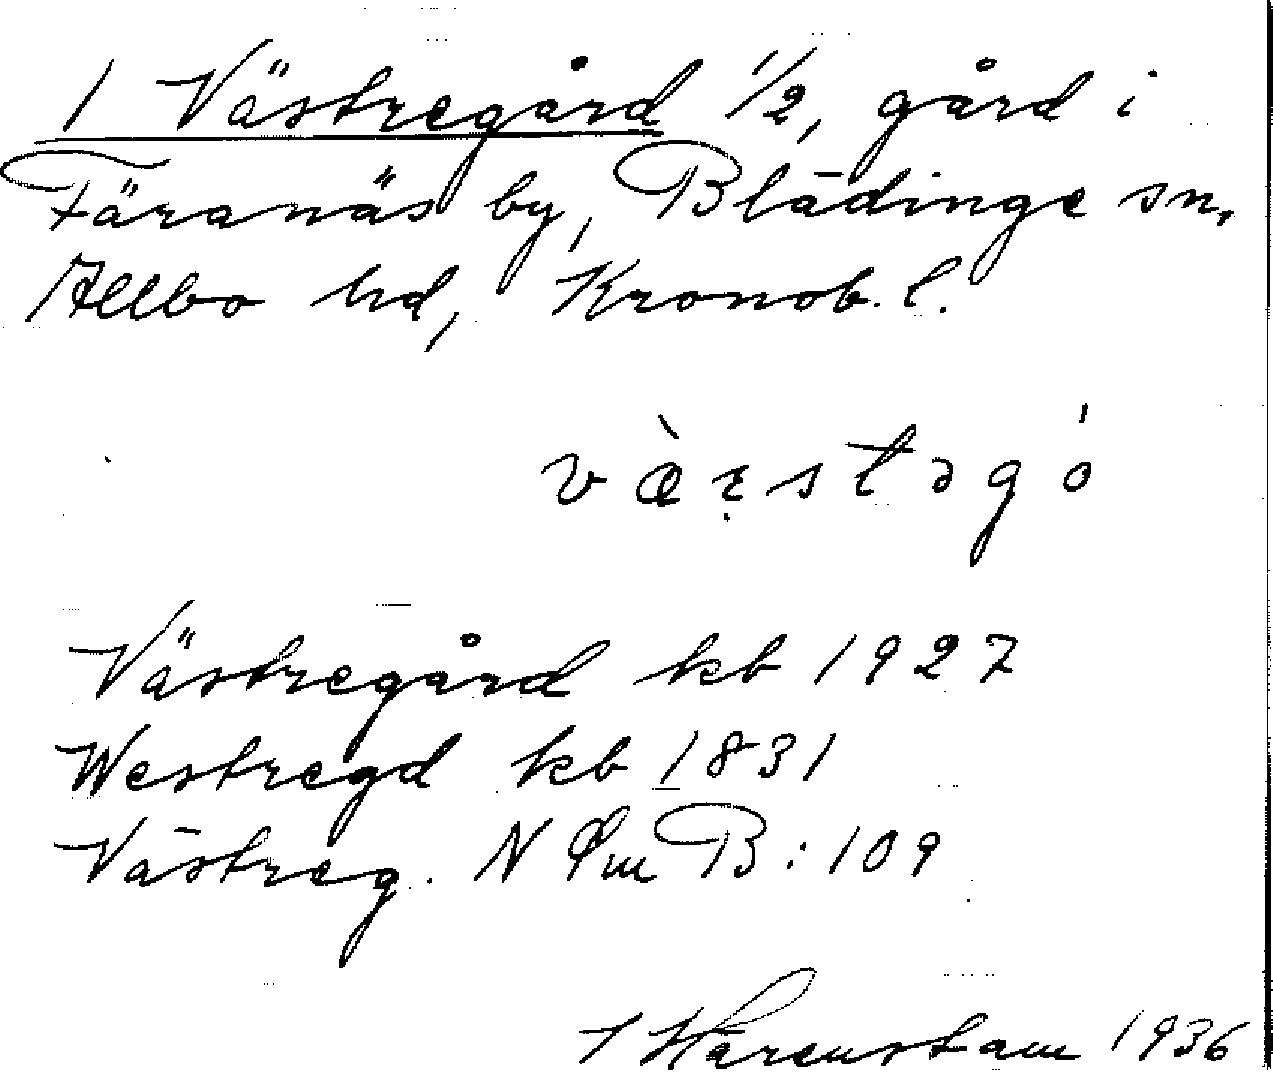 1 Västregård 1/2, gård i
Färanäs by, Blädinge sn,
Allbo hd, Kronob. l.
væ̀ṛstəgó
Västregård kb 1927
Westregd kb 1831
Västreg. N Öm B: 109
Härenstam 1936